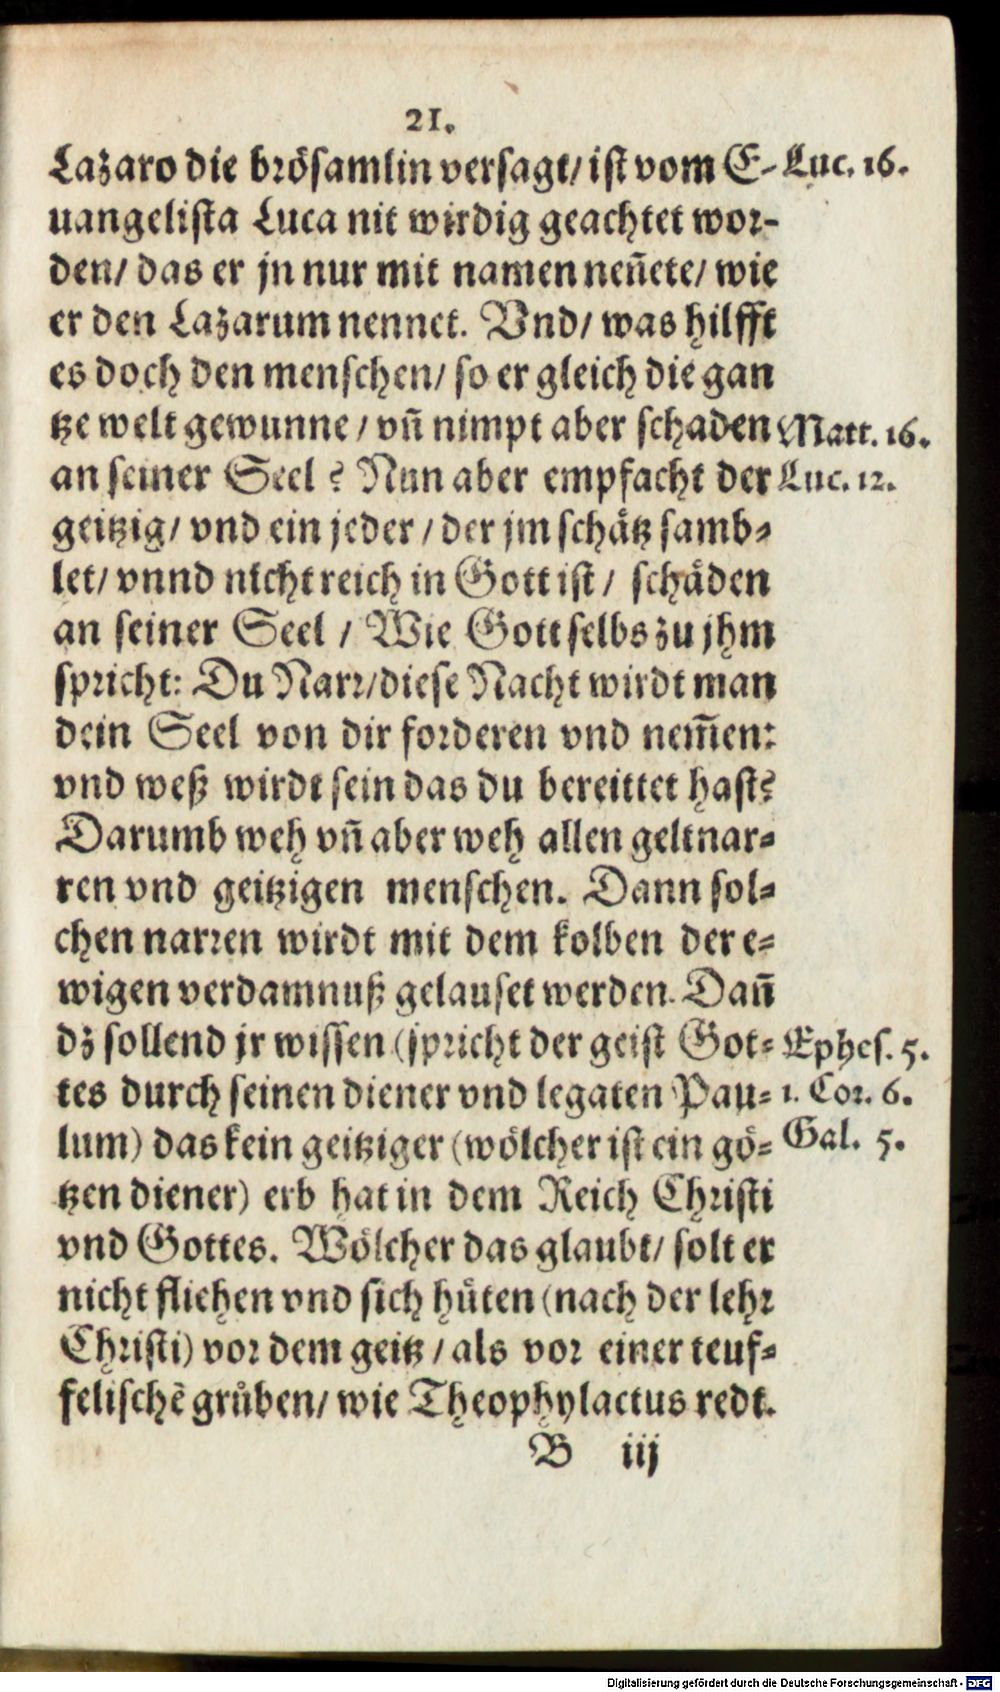 21.
Lazaro die brösamlin versagt/ ist vom E- Luc. 16.
uangelista Luca nit wirdig geachtet wor-
den/ das er jn nur mit namen neñete/ wie
er den Lazarum nennet. Vnd/ was hilfft
es doch den menschen/ so er gleich die gan
tze welt gewunne/ vñ nimpt aber schaden Matt. 16.
an seiner Seel? Nun aber empfacht der Luc. 12.
geitzig/ vnd ein jeder/ der jm schätz samb-
let/ vnnd nicht reich in Gott ist/ schäden
an seiner Seel/ Wie Gott selbs zu jhm
spricht: Du Narr/ diese Nacht wirdt man
dein Seel von dir forderen vnd nem̄en:
vnd weß wirdt sein das du bereittet hast?
Darumb weh vñ aber weh allen geltnar-
ren vnd geitzigen menschen. Dann sol-
chen narren wirdt mit dem kolben der e-
wigen verdamnuß gelauset werden. Dañ
dz sollend jr wissen (spricht der geist Got- Ephes. 5.
tes durch seinen diener vnd legaten Pau- 1. Cor. 6.
lum) das kein geitziger (wölcher ist ein gö- Gal. 5.
tzen diener) erb hat in dem Reich Christi
vnd Gottes. Wölcher das glaubt/ solt er
nicht fliehen vnd sich hüten (nach der lehr
Christi) vor dem geitz/ als vor einer teuf-
felischē grůben/ wie Theophylactus redt.
B iij
Digitalisierung gefördert durch die Deutsche Forschungsgemeinschaft - DFG